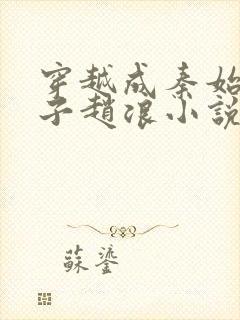 穿越成秦始
子趙浪小說
蘇鎏